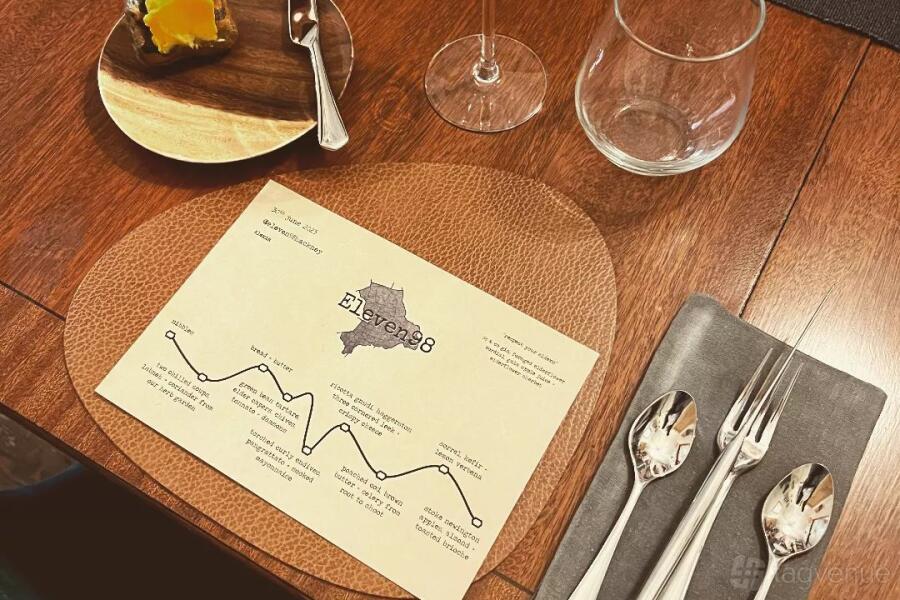 30th June 2023
@eleven98hackney
Eleven98
"respect your elders"
elderflower sherbet
nibbles
two chilled soups,
lobnes - coriander from
our herb garden
bread - butter
green bean tartare
elder capers, chives
tomato - damsons
torched curly endives
pangrattato - smoked
mayonnaise
ricotta gnudi haggerston
three cornered leek -
crispy cheese
poached cod brown
butter - celery from
root to shoot
sorrel kefir -
lemon verbena
stoke newington
apples, almond -
toasted brioche
tagvenue